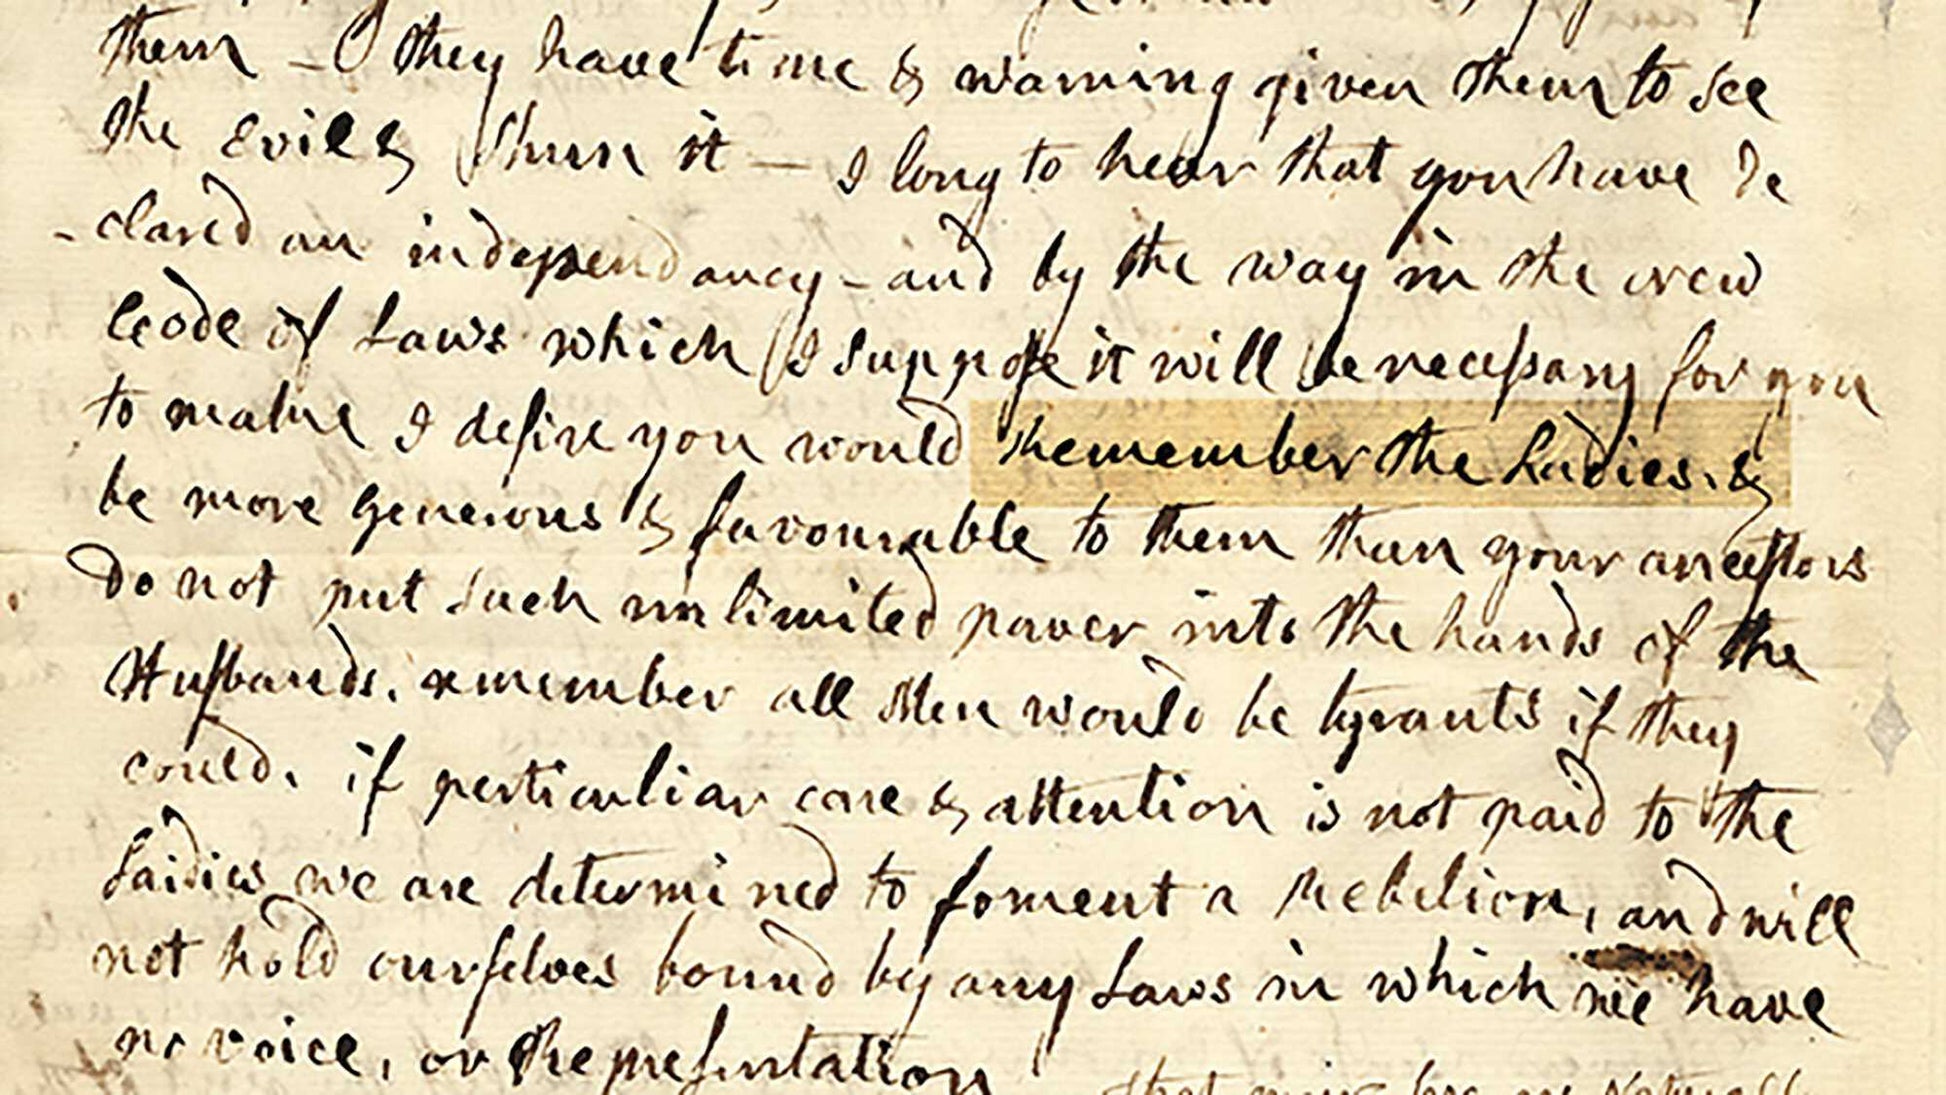 them – O they have time & warning given them to see
the Evil & shun it – I long to hear that you have de
-clared an independancy – and by the way in the new
Code of Laws which I suppose it will be necessary for you
to make I desire you would Remember the Ladies, &
be more generous & favourable to them than your ancestors
do not put such unlimited power into the hands of the
Husbands. remember all Men would be tyrants if they
could. if perticuliar care & attention is not paid to the
Laidies we are determined to foment a Rebelion, and will
not hold ourselves bound by any Laws in which we have
no voice, or Representation
that your Sex are Naturally